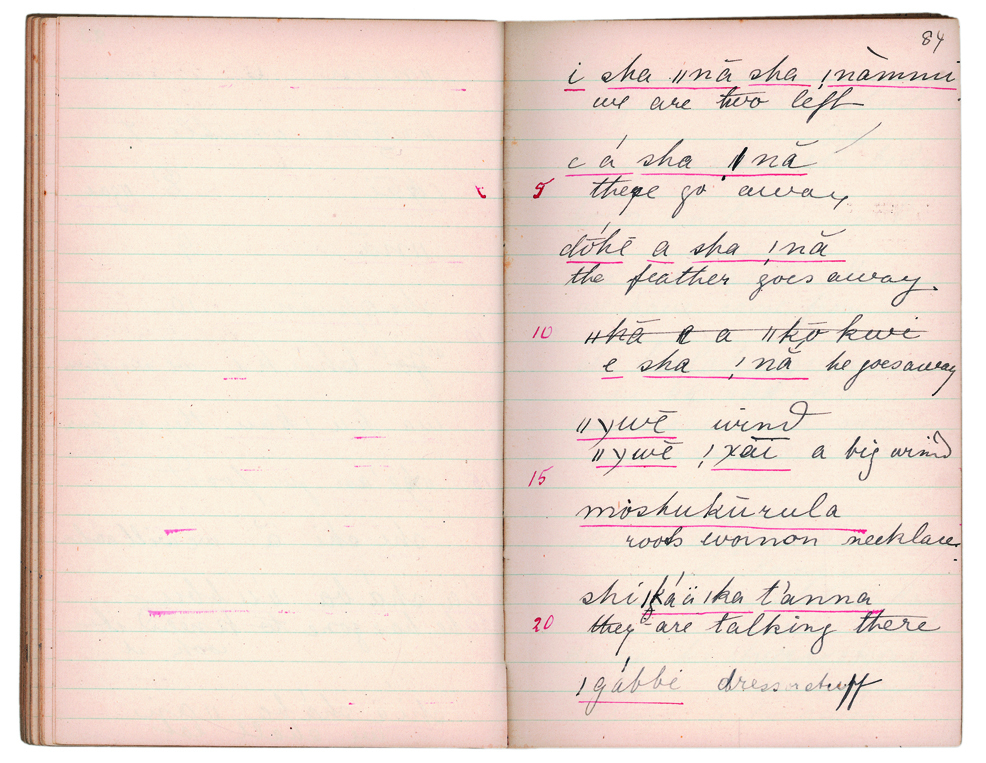 84
i sha ǁnā sha ǀnàmmi
we are two left
c á sha ǀnā
5 there go away
dṓhē a sha ǀnā
the feather goes away.
10 ǁkā a ǁkō kwi
e sha ǀnā he goes away
ǁywē wind
ǁywē ǀxāī a big wind
15
moshukūrula
roots womon necklace.
shi ká ä ǀka t'anna
20 they are talking there
ǀgábbè dress stuff